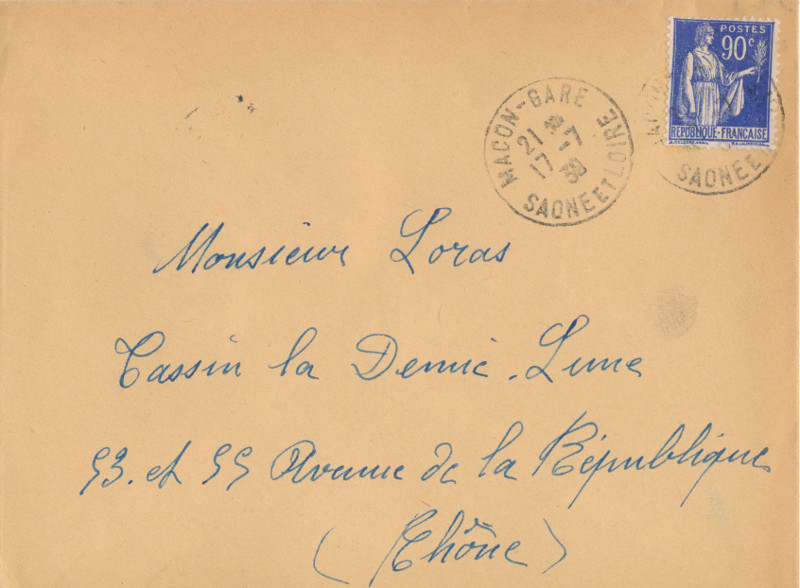 POSTES
90c
RÉPUBLIQUE-FRANÇAISE
MACON-GARE
21
17-7
39
SAONE ET LOIRE
SAONE ET
Monsieur Loras
Tassin la Demie-Lune
53. et 55 Avenue de la République
(Rhône)